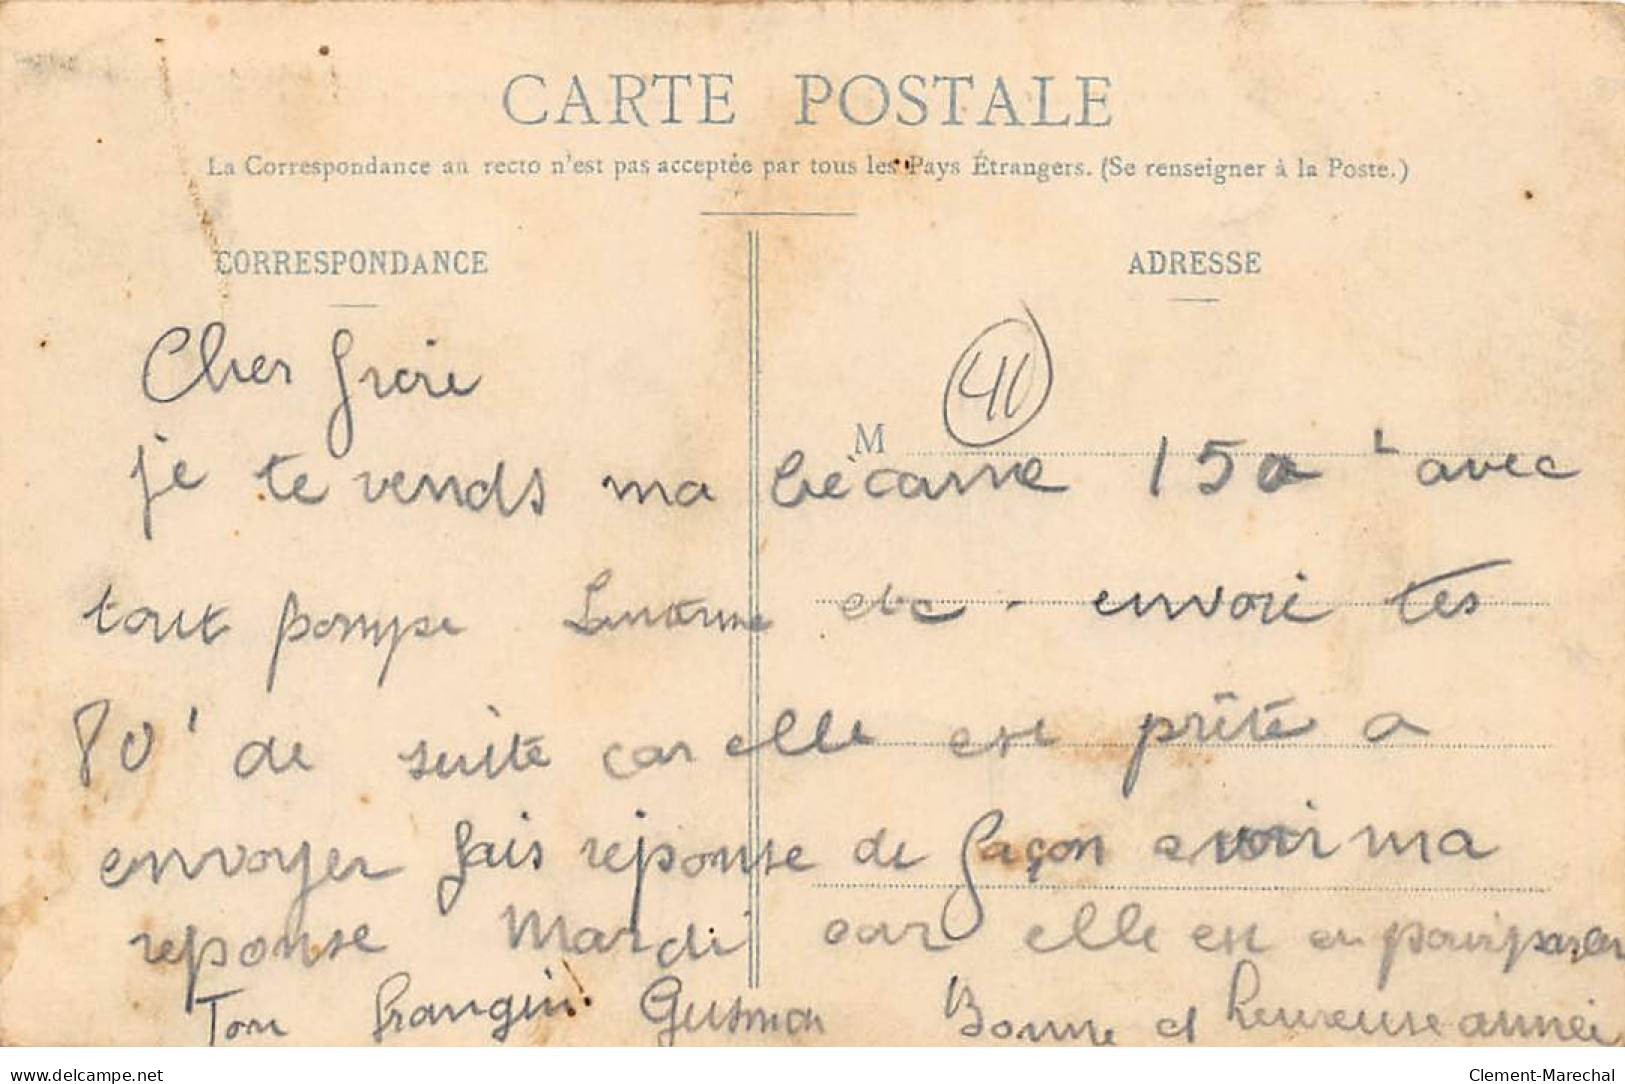 CARTE POSTALE
La Correspondance au recto n'est pas acceptée par tous les Pays Étrangers. (Se renseigner à la Poste.)
CORRESPONDANCE
ADRESSE
41
M
Cher frère
je te vends ma bécanne 150 avec
tout pompe Lanterne etc - envoie tes
80' de suite car elle est prête a
envoyer fais réponse de façon avoir ma
reponse Mardi car elle est en pourparler
Ton frangin Bonne et heureuse année
delcampe.net
Clement-Marechal